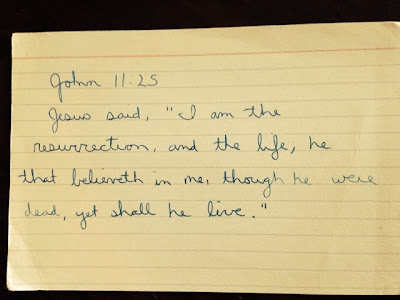 John 11:25
Jesus said, "I am the
resurrection, and the life, he
that believeth in me, though he were
dead, yet shall he live."